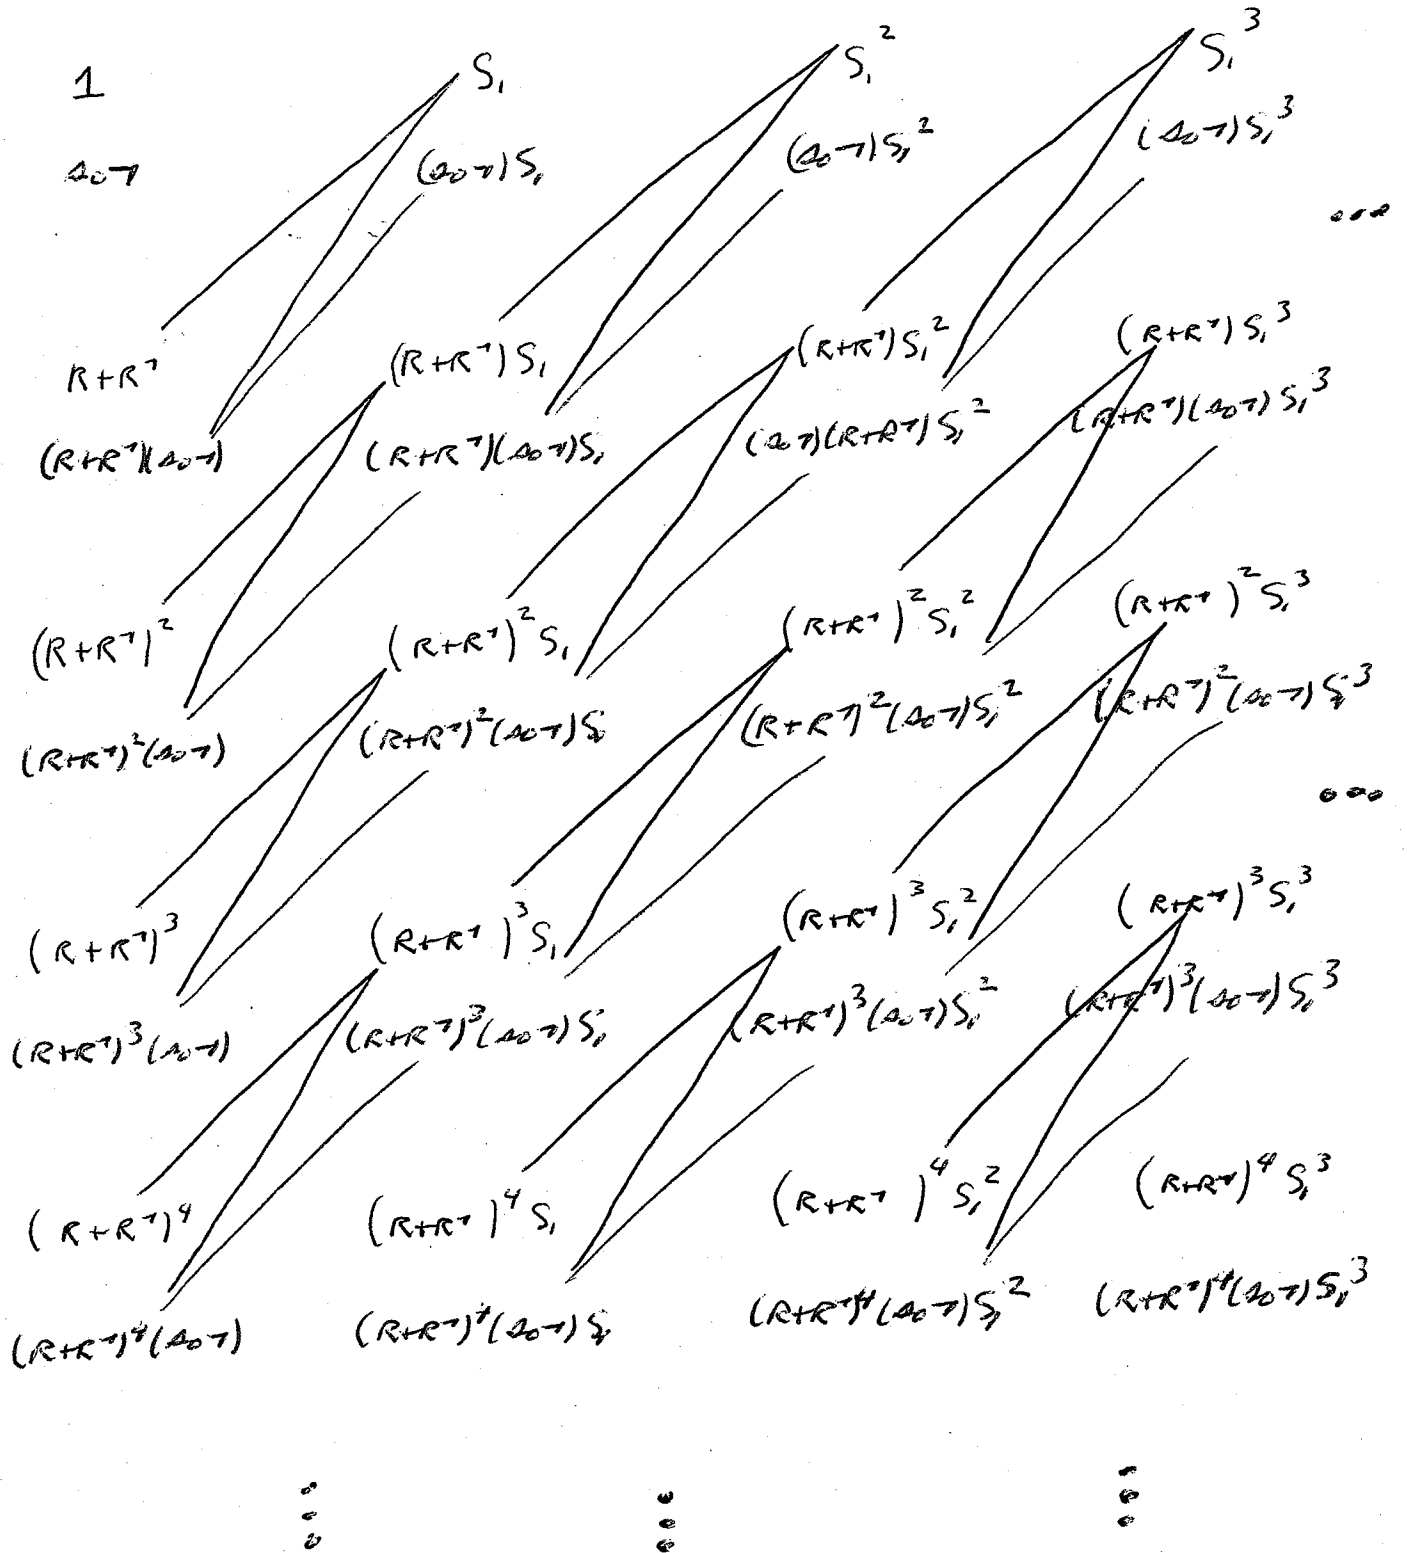 1 S₁ S₁² S₁³
s₀-1 (s₀-1)S₁ (s₀-1)S₁² (s₀-1)S₁³
...
R+R⁻¹ (R+R⁻¹)S₁ (R+R⁻¹)S₁² (R+R⁻¹)S₁³
(R+R⁻¹)(s₀-1) (R+R⁻¹)(s₀-1)S₁ (s₀-1)(R+R⁻¹)S₁² (R+R⁻¹)(s₀-1)S₁³
(R+R⁻¹)² (R+R⁻¹)²S₁ (R+R⁻¹)²S₁² (R+R⁻¹)²S₁³
(R+R⁻¹)²(s₀-1) (R+R⁻¹)²(s₀-1)S₁ (R+R⁻¹)²(s₀-1)S₁² (R+R⁻¹)²(s₀-1)S₁³
...
(R+R⁻¹)³ (R+R⁻¹)³S₁ (R+R⁻¹)³S₁² (R+R⁻¹)³S₁³
(R+R⁻¹)³(s₀-1) (R+R⁻¹)³(s₀-1)S₁ (R+R⁻¹)³(s₀-1)S₁² (R+R⁻¹)³(s₀-1)S₁³
(R+R⁻¹)⁴ (R+R⁻¹)⁴S₁ (R+R⁻¹)⁴S₁² (R+R⁻¹)⁴S₁³
(R+R⁻¹)⁴(s₀-1) (R+R⁻¹)⁴(s₀-1)S₁ (R+R⁻¹)⁴(s₀-1)S₁² (R+R⁻¹)⁴(s₀-1)S₁³